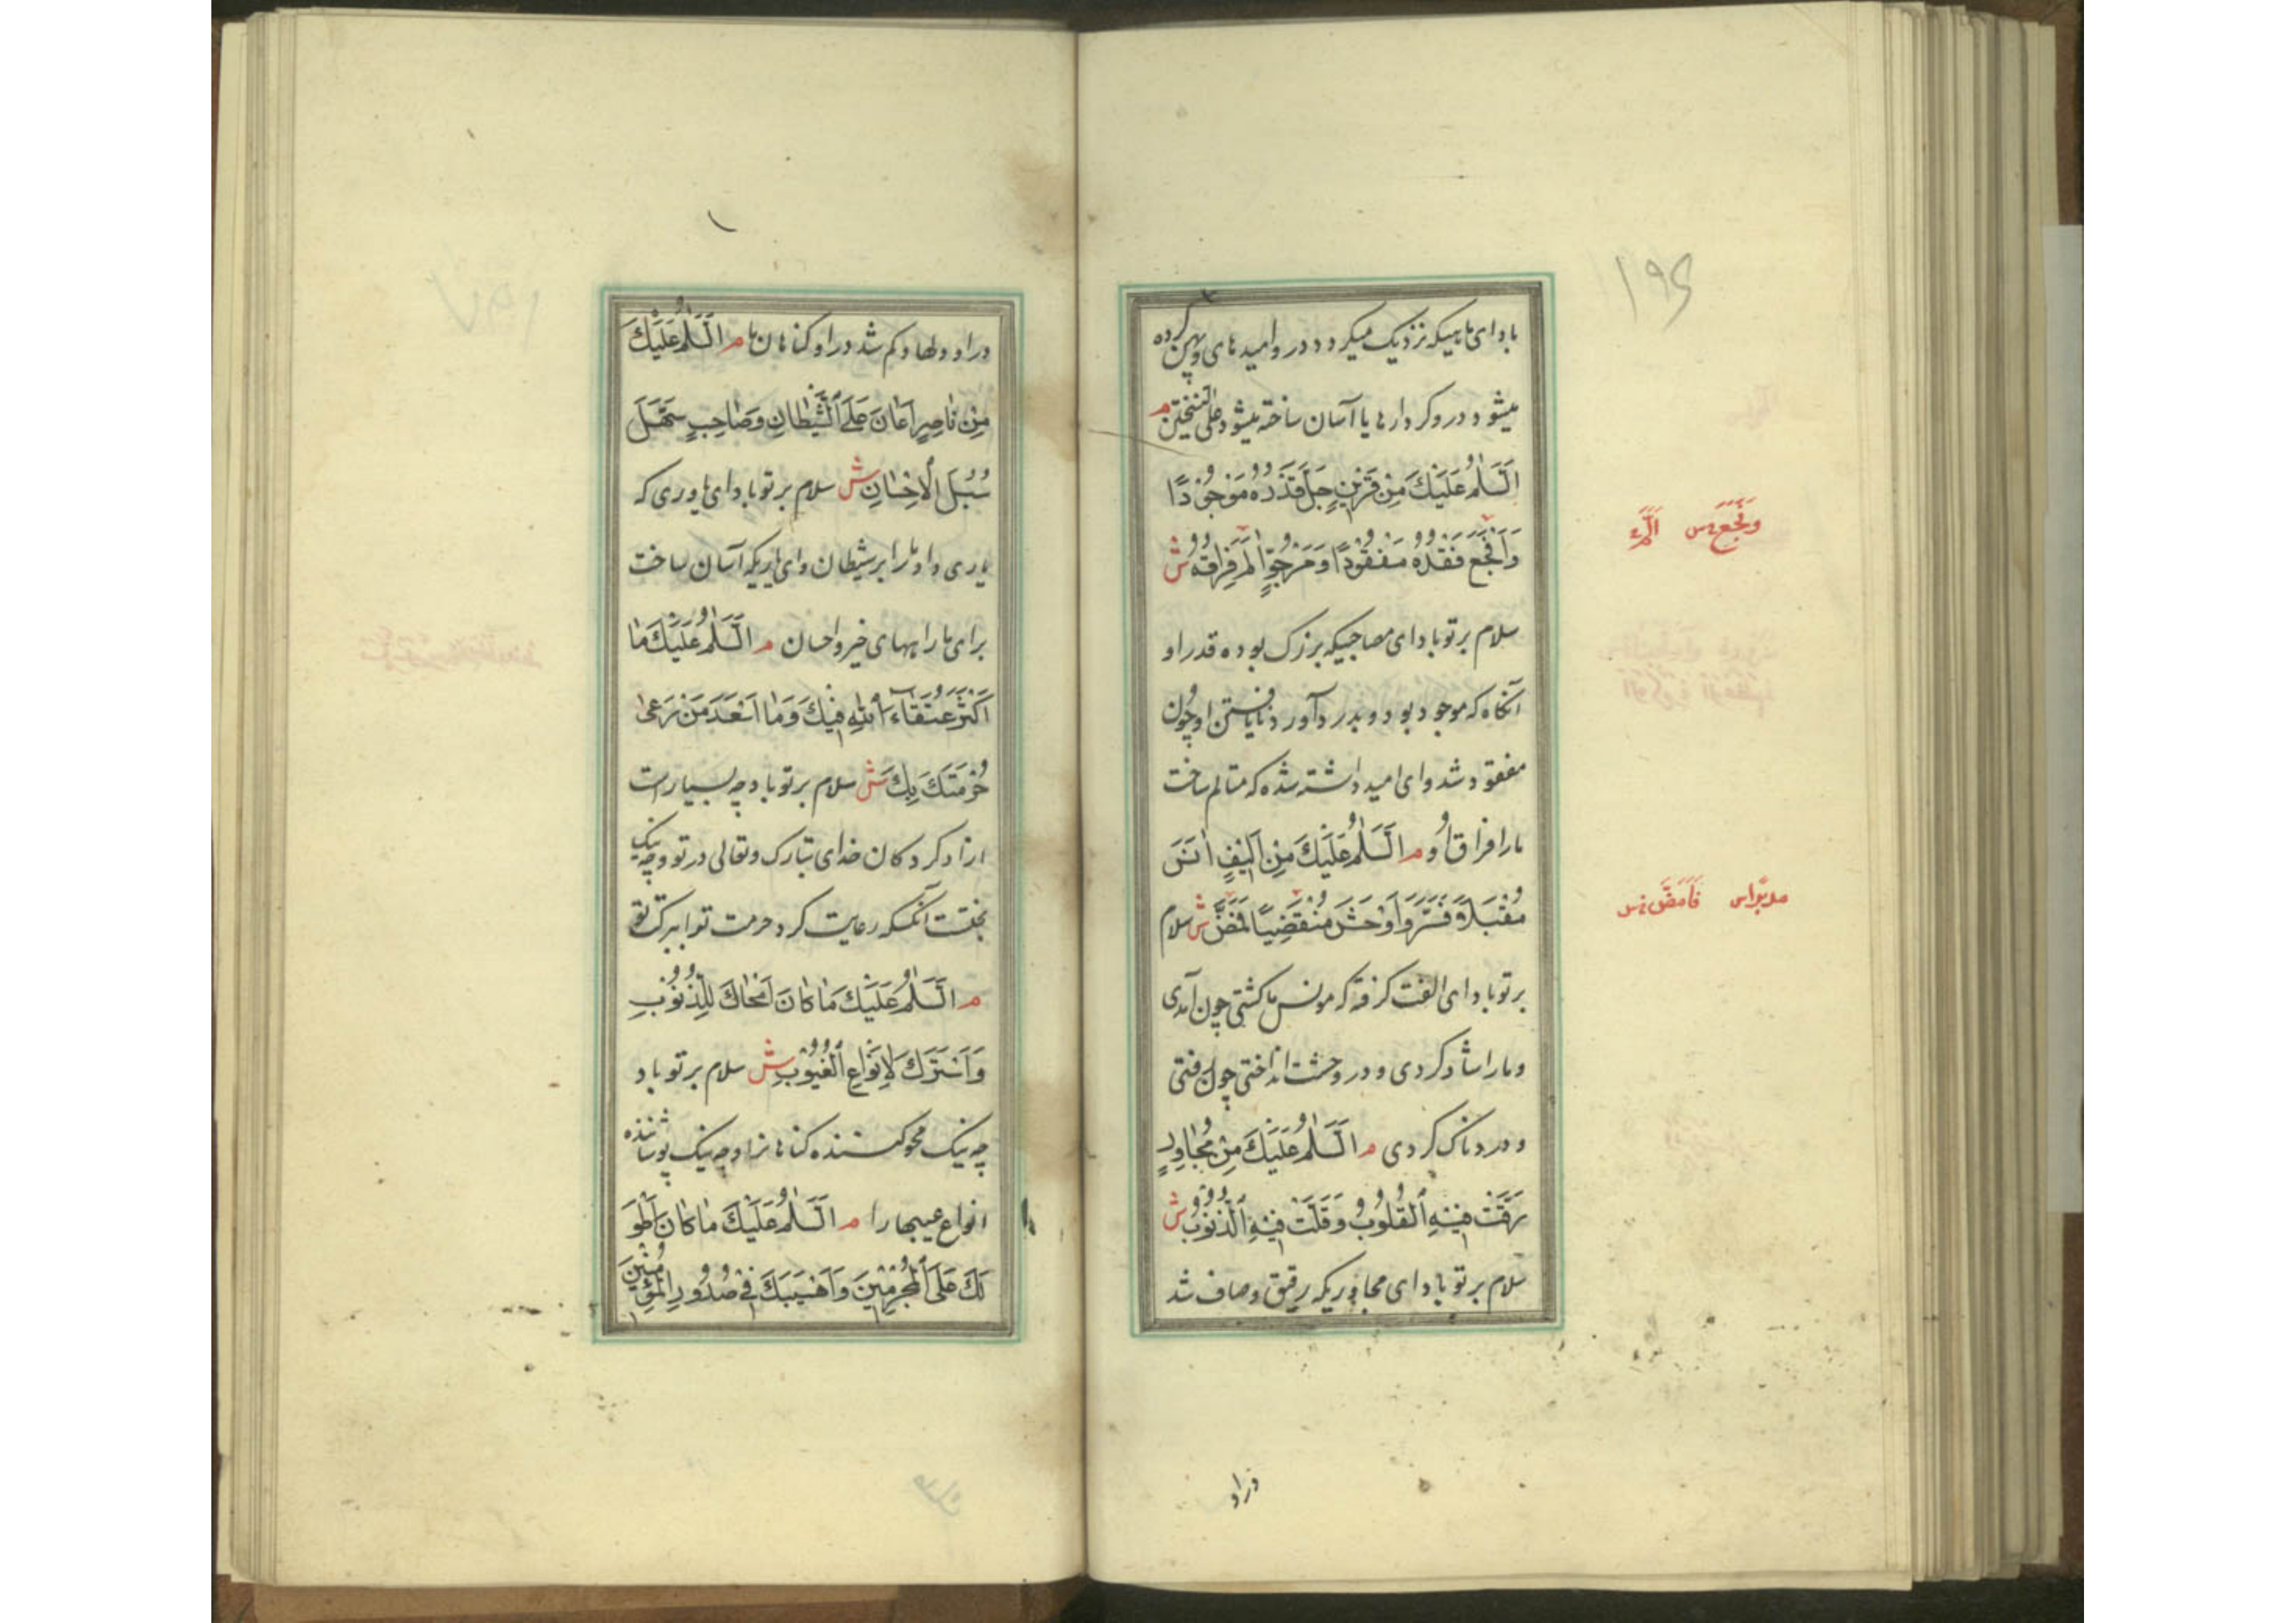 ۱۹۶
باد ای ماهیکه نزدیک میکردد در و امیدهای و پهن کرده
میشود در و کردارها یا آسان ساخته میشود علی النسختین م
اَلسَّلٰمُ عَلَیْکَ مِنْ قَرینٍ جَلَّ قَدْرُهُ مَوْجُودًا
وَاَفْجَعَ فَقْدُهُ مَفْقُودًا وَمَرْجُوٍّ اٰلَمَ فِرٰاقُهُ ش
سلام بر تو باد ای مصاحبیکه بزرک بوده قدر او
آنکاه که موجود بود و بدرد آورد نایافتن او چون
مفقود شد و ای امید داشته شده که متالم ساخت
ما را فراق او م اَلسَّلٰمُ عَلَیْکَ مِنْ اَلیفٍ اٰنَسَ
مُقْبِلًا فَسَرَّ وَاَوْحَشَ مُنْقَضِیًا فَمَضَّ ش سلام
بر تو باد ای الفت گرفته که مونس ما کشتی چون آمدی
و ما را شاد کردی و در وحشت انداختی چون رفتی
و دردناک کردی م اَلسَّلٰمُ عَلَیْکَ مِنْ مُجٰاوِرٍ
رَقَّتْ فیهِ الْقُلُوبُ وَقَلَّتْ فیهِ الذُّنُوبُ ش
سلام بر تو باد ای مجاوریکه رقیق و صاف شد
وَفَجَّعَ س اَلَمَ
مدبرًا س فَاَمَضَّ س
در او
در او دلها و کم شد در او کناهان ما م اَلسَّلٰمُ عَلَیْکَ
مِنْ نٰاصِرٍ اَعٰانَ عَلَی الشَّیْطٰانِ وَصٰاحِبٍ سَهَّلَ
سُبُلَ الْاِحْسٰانِ ش سلام بر تو باد ای یاوری که
یاری داد ما را بر شیطان و ای یاریکه آسان ساخت
برای ما راههای خیر و احسان م اَلسَّلٰمُ عَلَیْکَ مٰا
اَکْثَرَ عُتَقٰاءَ اللهِ فیکَ وَمٰا اَسْعَدَ مَنْ رَعٰی
حُرْمَتَکَ بِکَ ش سلام بر تو باد چه بسیار است
ازاد کردکان خدای تبارک و تعالی در تو و چه نیک
بختست آنکسکه رعایت کرد حرمت تو را ببرکت تو
م اَلسَّلٰمُ عَلَیْکَ مٰا کٰانَ اَمْحٰاکَ لِلذُّنُوبِ
وَاَسْتَرَکَ لِاَنْوٰاعِ الْعُیُوبِ ش سلام بر تو باد
چه نیک محو کننده کناهانرا و چه نیک پوشاننده
انواع عیبها را م اَلسَّلٰمُ عَلَیْکَ مٰا کٰانَ اَطْوَ
لَکَ عَلَی الْمُجْرِمینَ وَاَهْیَبَکَ فی صُدُورِ الْمُؤْمِنینَ